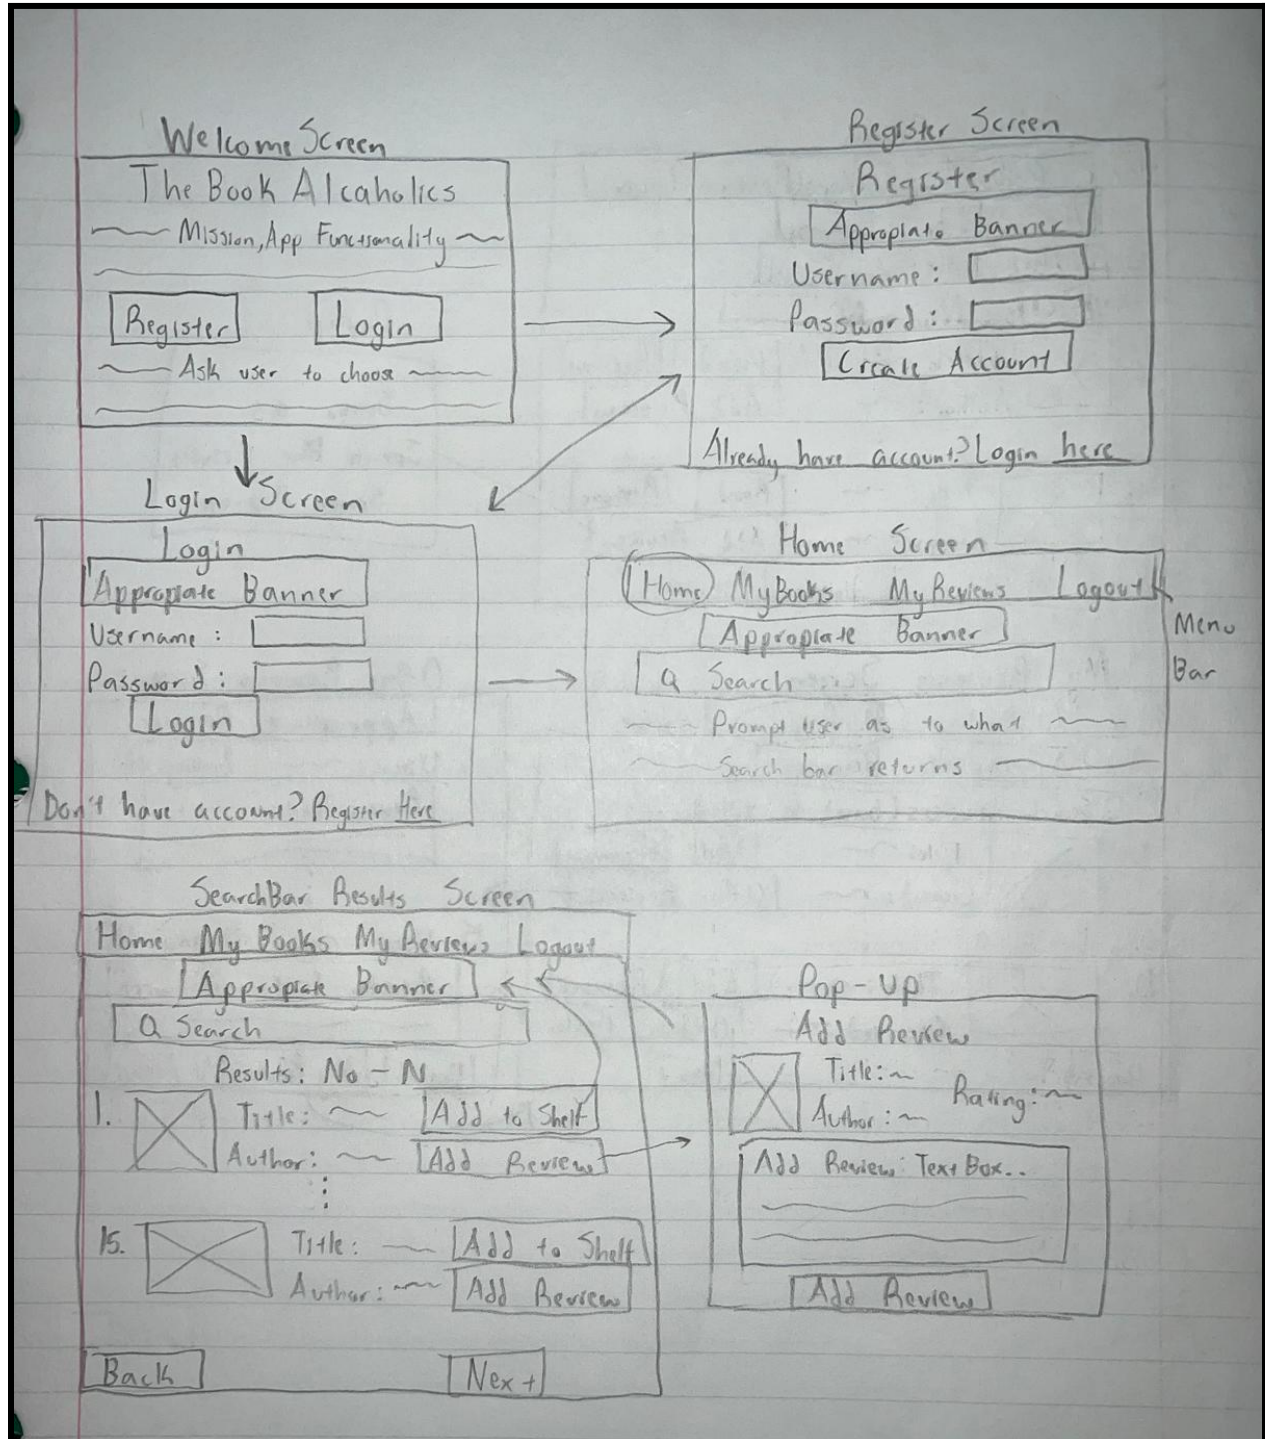 Welcome Screen
The Book Alcaholics
Mission, App Functionality
Register Login
Ask user to choose
Register Screen
Register
Appropiate Banner
Username:
Password:
Create Account
Already have account? Login here
Login Screen
Login
Appropiate Banner
Username:
Password:
Login
Don't have account? Register Here
Home Screen
Home My Books My Reviews Logout
Menu
Bar
Appropiate Banner
Search
Prompt user as to what
Search bar returns
SearchBar Results Screen
Home My Books My Reviews Logout
Appropiate Banner
Search
Results: No - N
1. Title: Add to Shelf
Author: Add Review
15. Title: Add to Shelf
Author: Add Review
Back Next
Pop-Up
Add Review
Title:
Rating:
Author:
Add Review: Text Box..
Add Review